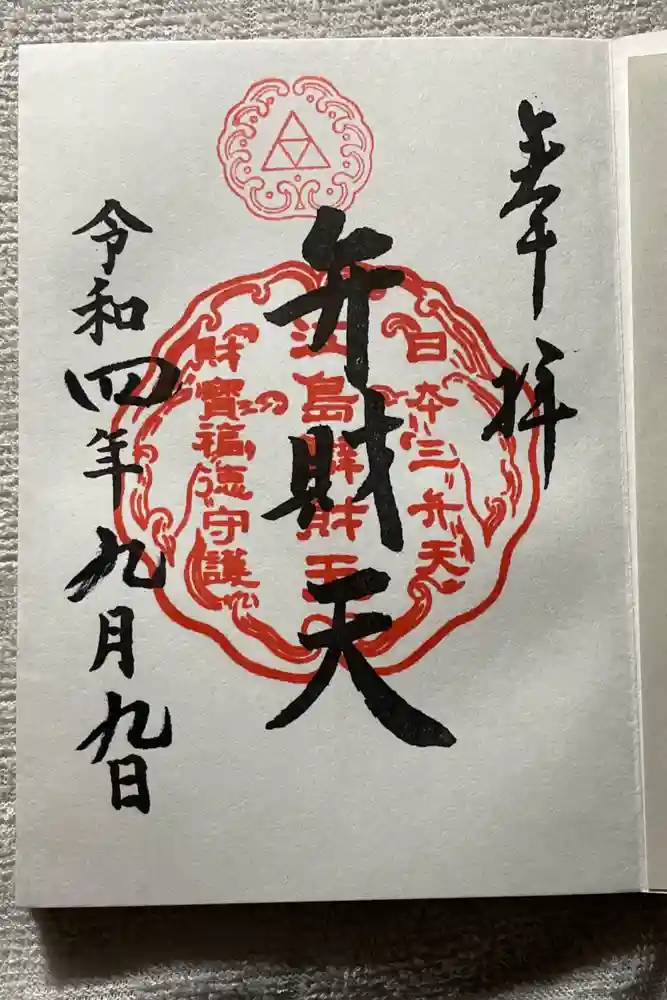 奉拝
弁財天
令和四年九月九日
日本三弁天
江島辨財天
財寳福徳守護